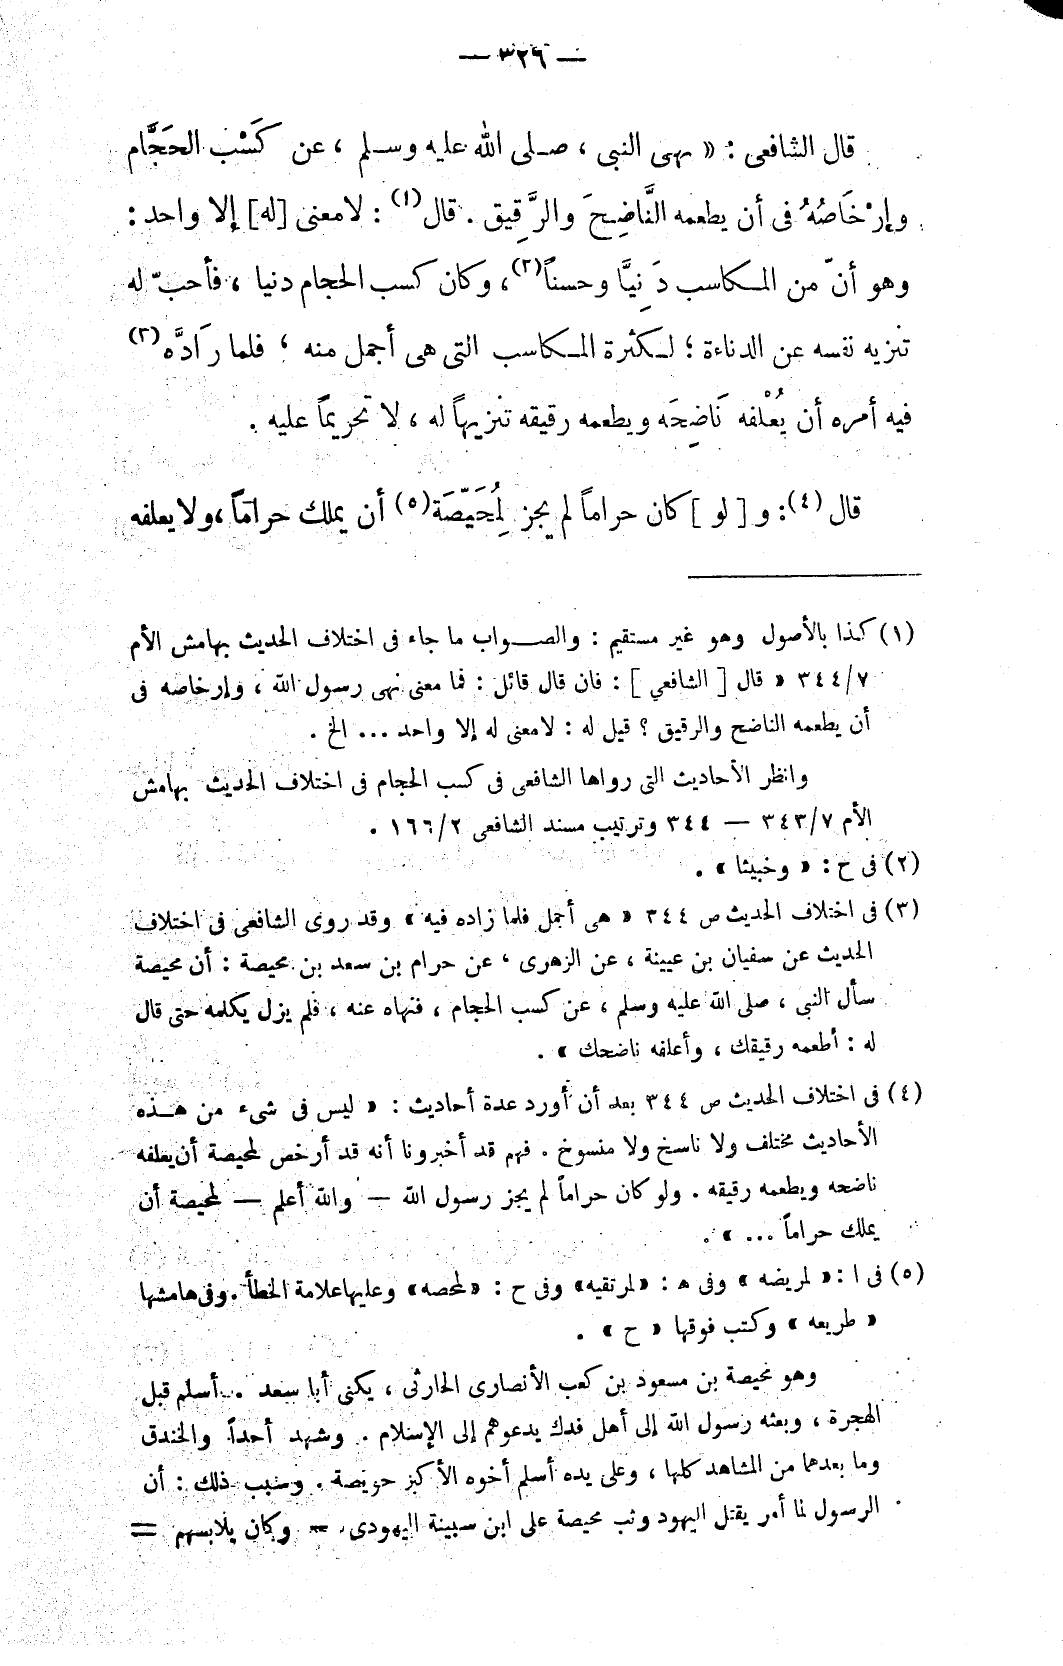 — ٣٢٦ —
قال الشافعى : « نهى النبى ، صلى الله عليه وسلم ، عن كَسْب الحَجَّام
وإرْخَاصُهُ فى أن يطعمه النَّاضِحَ والرَّقِيق . قال(١) : لا معنى [له] إلا واحد :
وهو أنّ من المكاسب دَنِيًّا وحسناً(٢)، وكان كسب الحجام دنيا ، فأحبّ له
تنزيه نفسه عن الدناءة ؛ لكثرة المكاسب التى هى أجمل منه ؛ فلما رَادَّه(٣)
فيه أمره أن يُعْلفه نَاضِحَه ويطعمه رقيقه تنزيهاً له ، لا تحريمًا عليه .
قال (٤): و [ لو ] كان حراماً لم يجز لِمُحَيِّصَة(٥) أن يملك حراماً ، ولا يعلفه
(١) كذا بالأصول وهو غير مستقيم : والصواب ما جاء فى اختلاف الحديث بهامش الأم
٣٤٤/٧ « قال [ الشافعي ] : فان قال قائل : فما معنى نهى رسول الله ، وإرخاصه فى
أن يطعمه الناضح والرقيق ؟ قيل له : لا معنى له إلا واحد ... الخ .
وانظر الأحاديث التى رواها الشافعى فى كسب الحجام فى اختلاف الحديث بهامش
الأم ٣٤٣/٧ — ٣٤٤ وترتيب مسند الشافعى ١٦٦/٢ .
(٢) فى ح : « وخبيثا » .
(٣) فى اختلاف الحديث ص ٣٤٤ « هى أجمل فلما زاده فيه » وقد روى الشافعى فى اختلاف
الحديث عن سفيان بن عيينة ، عن الزهرى ، عن حرام بن سعد بن محيصة : أن محيصة
سأل النبى ، صلى الله عليه وسلم ، عن كسب الحجام ، فنهاه عنه ، فلم يزل يكلمه حتى قال
له : أطعمه رقيقك ، وأعلفه ناضحك » .
(٤) فى اختلاف الحديث ص ٣٤٤ بعد أن أورد عدة أحاديث : « ليس فى شىء من هذه
الأحاديث مختلف ولا ناسخ ولا منسوخ . فهم قد أخبرونا أنه قد أرخص لمحيصة أن يعلفه
ناضحه ويطعمه رقيقه . ولو كان حراماً لم يجز رسول الله — والله أعلم — لمحيصة أن
يملك حراماً ... » .
(٥) فى ا : « لمريضه » وفى هـ : «لمرتقيه» وفى ح : «لمحصه» وعليها علامة الخطأ . وفى هامشها
« طريعه » وكتب فوقها « ح » .
وهو محيصة بن مسعود بن كعب الأنصارى الحارثى ، يكنى أبا سعد . أسلم قبل
الهجرة ، وبعثه رسول الله إلى أهل فدك يدعوهم إلى الإسلام . وشهد أحداً والخندق
وما بعدهما من المشاهد كلها ، وعلى يده أسلم أخوه الأكبر حويصة . وسبب ذلك : أن
الرسول لما أمر بقتل اليهود وثب محيصة على ابن سبينة اليهودى — وكان يلابسهم =